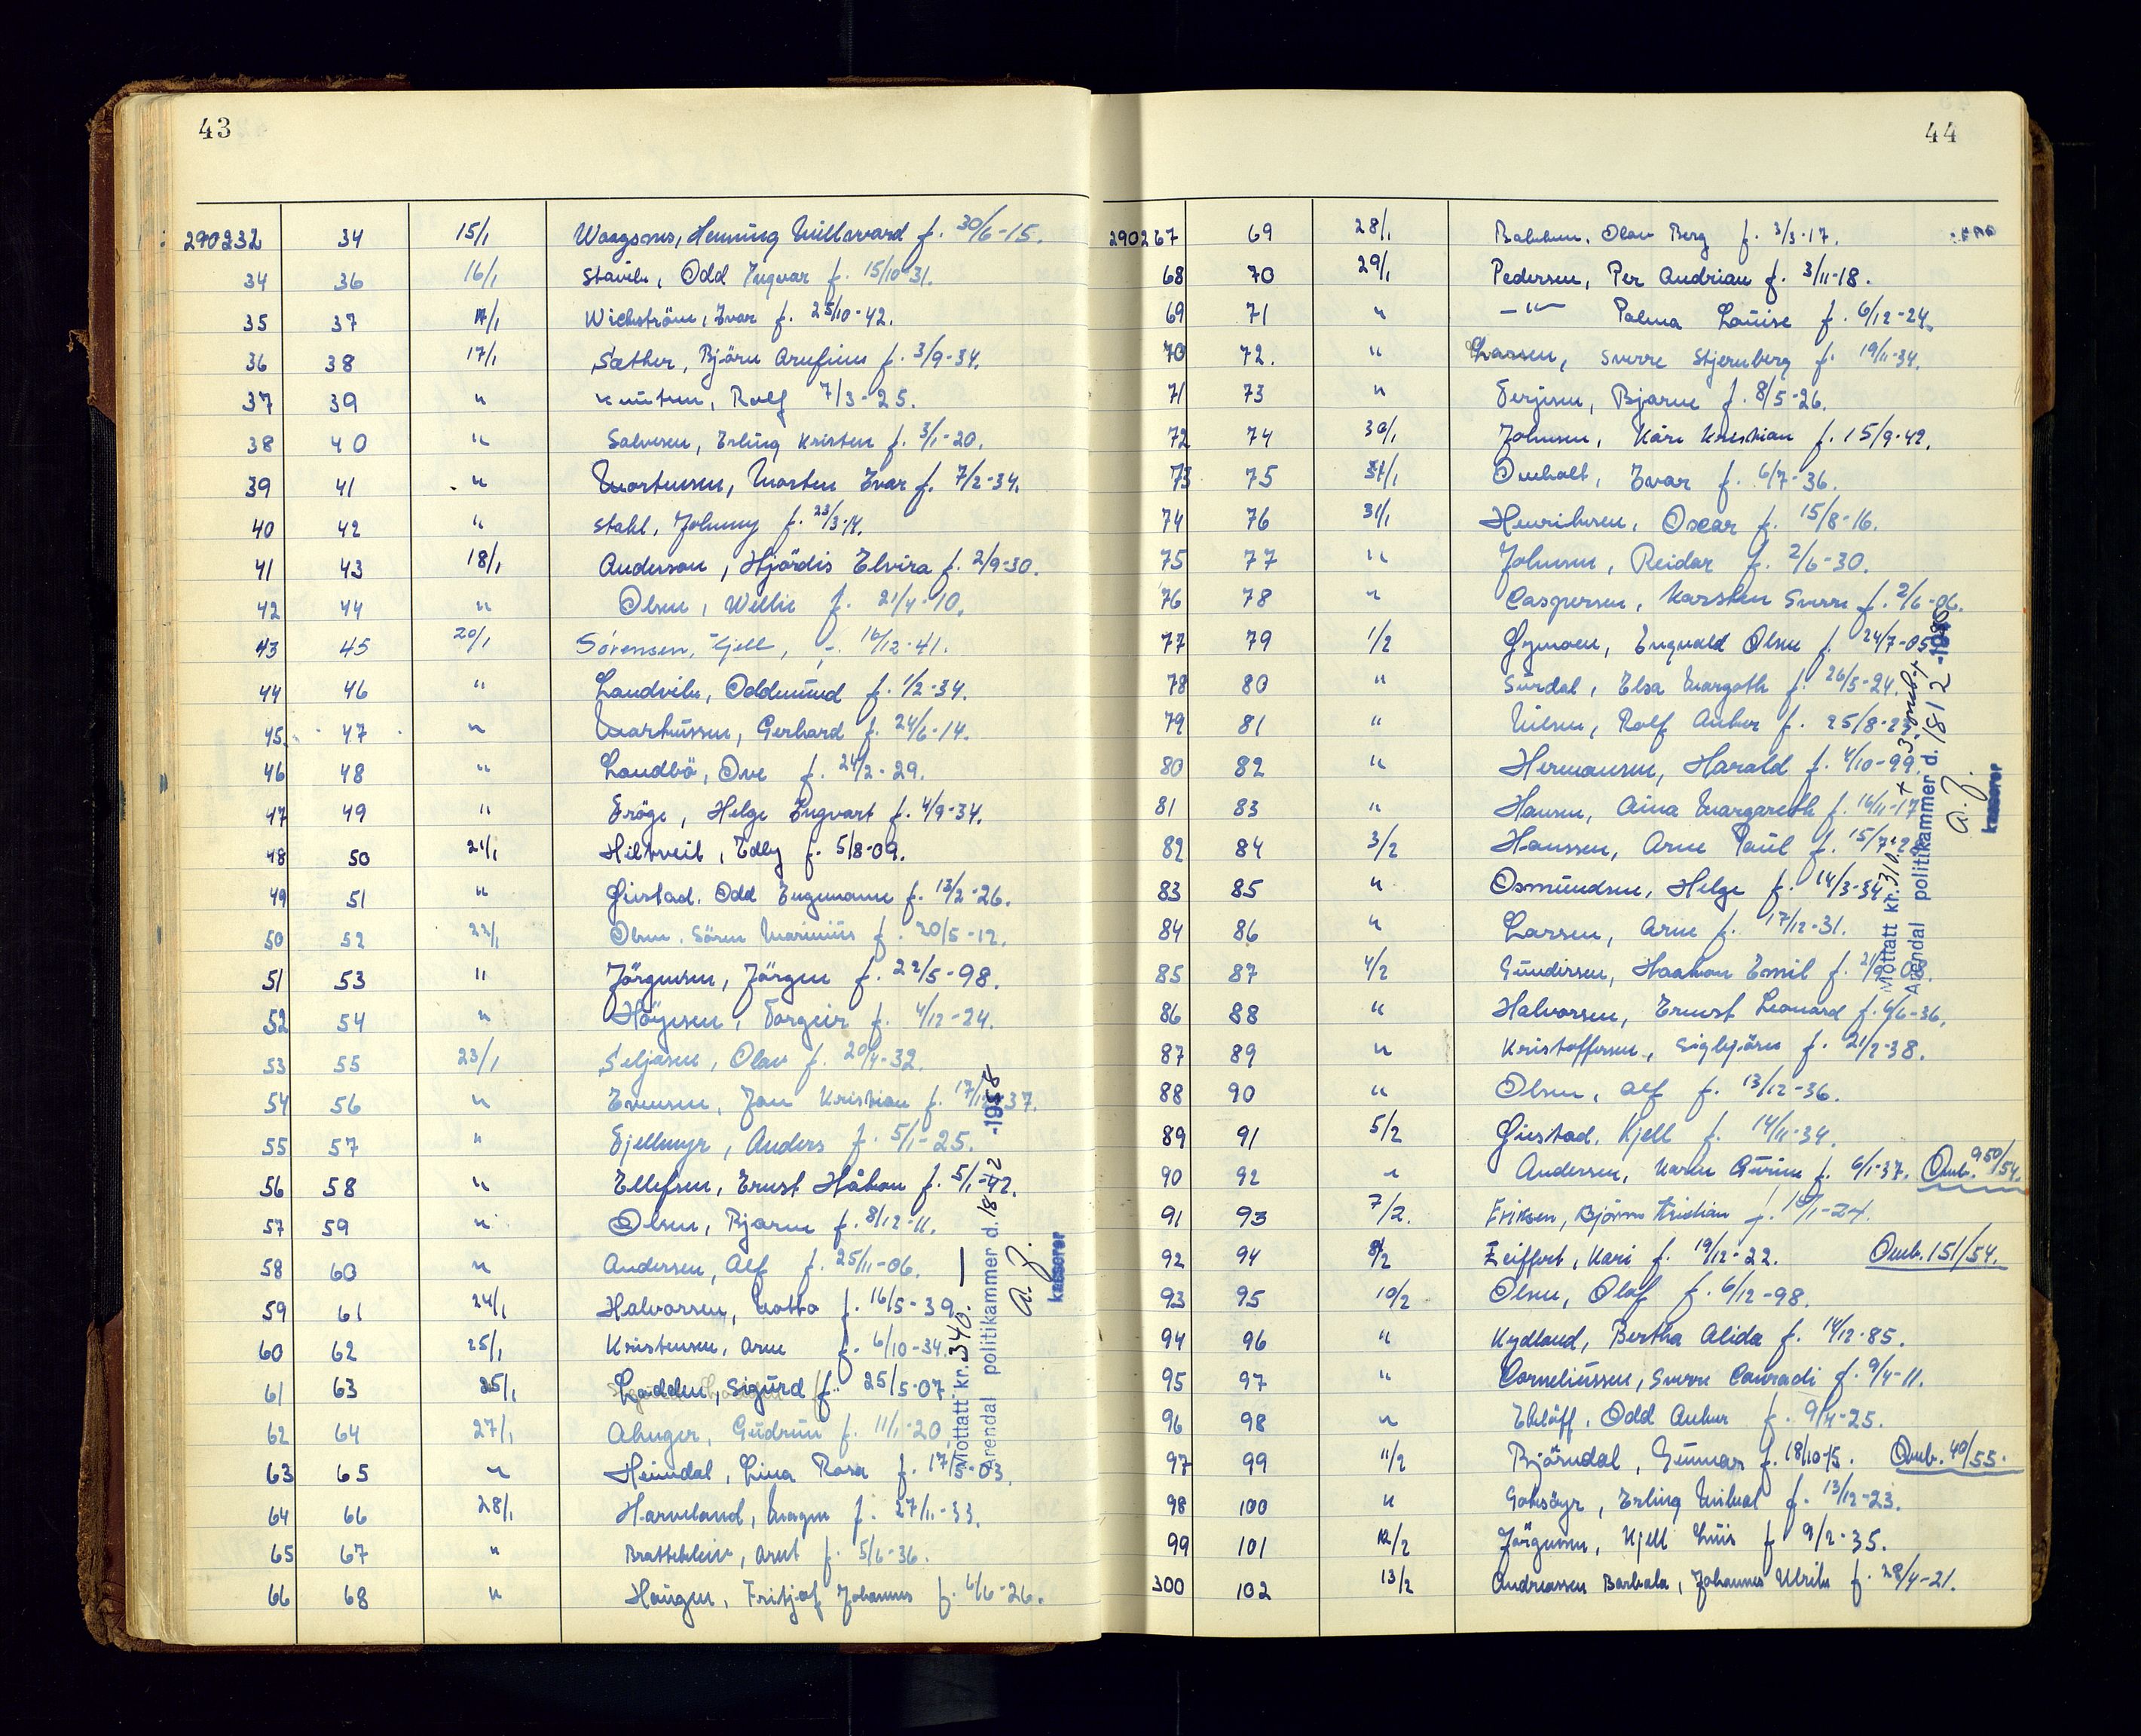 43
290232 34 15/1 Waagsnes, Henning Millavard f. 30/6-15.
34 36 16/1 Støvik, Odd Ingvar f. 15/10-31.
35 37 17/1 Wickström, Ivar f. 25/10-42.
36 38 17/1 Sæther, Björn Arnfinn f. 3/9-34.
37 39 " Knutsen, Rolf 7/3-25.
38 40 " Salvesen, Erling Kristen f. 3/1-20.
39 41 " Mortensen, Morten Ivar f. 7/2-34.
40 42 " Stahl, Johnny f. 23/3-14.
41 43 18/1 Anderson, Hjördis Elvira f. 2/9-30.
42 44 " Olsen, Willie f. 21/4-10.
43 45 20/1 Sörensen, Kjell, f. 16/12-41.
44 46 " Landvik, Oddmund f. 1/2-34.
45 47 " Markussen, Gerhard f. 24/6-14.
46 48 " Landbö, Ove f. 24/2-29.
47 49 " Tröge, Helge Ingvart f. 4/9-34.
48 50 21/1 Edly f. 5/8-09.
49 51 " Gjestad, Odd Ingemann f. 13/2-26.
50 52 22/1 Olsen, Sören Marinius f. 20/5-12.
51 53 " Jörgensen, Jörgen f. 22/5-98.
52 54 " Höyesen, Torgeir f. 4/12-24.
53 55 23/1 Seljåsen, Olav f. 20/4-32.
54 56 " Evensen, Jan Kristian f. 17/12-37.
55 57 " Fjellmyr, Anders f. 5/1-25.
56 58 " Ellefsen, Ernst Håkon f. 5/1-42.
57 59 " Olsen, Bjarne f. 8/12-11.
58 60 " Andersen, Alf f. 25/11-06.
59 61 24/1 Halvorsen, Motto f. 16/5-39.
60 62 25/1 Kristensen, Arne f. 6/10-34.
61 63 25/1 Lodden, Sigurd f. 25/5-07.
62 64 27/1 Gudrun f. 11/1-20
63 65 " Heimdal, Lina Rosa f. 17/5-03.
64 66 28/1 Harveland, Magne f. 27/11-33.
65 67 " Brattekleiv, Arnt f. 5/6-36.
66 68 " Haugen, Fritjof Johannes f. 6/6-26.
Mottatt kr. 340.—
Arendal politikammer d. 18 2 -1958
A. J.
kasserer
44
290267 69 28/1 Olav Berg f. 3/3-17.
68 70 29/1 Pedersen, Per Andrian f. 3/11-18.
69 71 " —"— Palma Louise f. 6/12-24.
70 72. " Larsen, Sverre Stjernberg f. 19/11-34.
71 73 " Terjesen, Bjarne f. 8/5-26.
72 74 30/1 Johnsen, Kåre Kristian f. 15/9-42.
73 75 31/1 Omholt, Ivar f. 6/7-36.
74 76 31/1 Henriksen, Oscar f. 15/8-16.
75 77 " Johnsen, Reidar f. 2/6-30.
76 78 " Caspersen, Karsten Sverre f. 2/6-06.
77 79 1/2 Gymoen, Ingvald Olsen f. 24/7-05
78 80 " Surdal, Elsa Margoth f. 26/5-24.
79 81 " Nilsen, Rolf Anker f. 25/8-
80 82 " Hermansen, Harald f. 4/10-99.
81 83 " Hansen, Aina Margareth f. 16/11-17
82 84 3/2 Hanssen, Arne Paul f. 15/7-
83 85 " Osmundsen, Helge f. 14/3-34
84 86 " Larsen, Arne f. 17/12-31.
85 87 4/2 Gundersen, Haakon Emil f.
86 88 " Halvorsen, Ernst Leonard f. 6/6-36.
87 89 " Kristoffersen, Sigbjörn f. 21/2-38.
88 90 " Olsen, Alf f. 13/12-36.
89 91 5/2 Gjestad, Kjell f. 14/11-34.
90 92 " Andersen, Karen f. 6/1-37. Omb. 950/54.
91 93 7/2. Eriksen, Björn Kristian f. -24.
92 94 8/2 Zeiffert, Kari f. 19/12-22. Omb. 151/54.
93 95 10/2 Olsen, Olaf f. 6/12-98.
94 96 " Kydland, Bertha Alida f. 14/12-85.
95 97 " Corneliussen, Sverre Conradi f. 9/4-11.
96 98 " Ekelöff, Odd Anker f. 9/4-25.
97 99 11/2 Björndal, Gunnar f. 18/10-15. Omb. 40/55.
98 100 " Erling Mikal f. 13/12-23.
99 101 12/2 Jörgensen, Kjell Luis f 9/2-35.
300 102 13/2 Andreassen Barbala, Johannes Ulrik f. 28/4-21.
Mottatt kr. 310.
Arendal politikammer d. 18 2 -1958
A. J.
kasserer